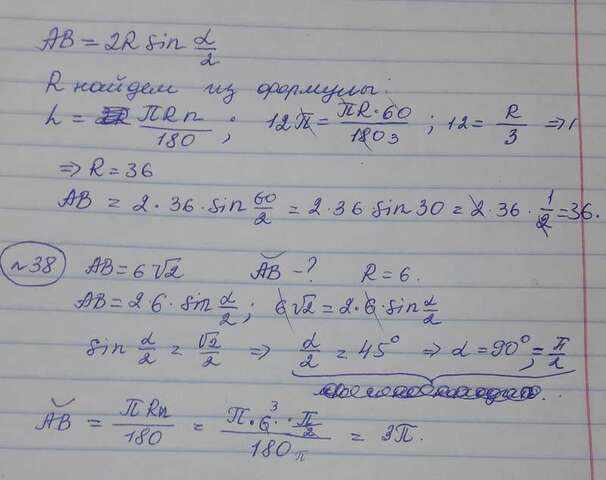 AB = 2R sin α/2
R найдем из формулы:
L = πRn/180; 12π = πR·60/180 3; 12 = R/3 ⇒
⇒ R = 36
AB = 2·36·sin 60/2 = 2·36 sin 30 = 2·36·1/2 = 36.
№38 AB = 6√2 ͝AB - ? R = 6.
AB = 2·6·sin α/2; 6√2 = 2·6·sin α/2
sin α/2 = √2/2 ⇒ α/2 = 45° ⇒ α = 90° = π/2
͝AB = πRn/180 = π·6 3·π/2/180 π = 3π.